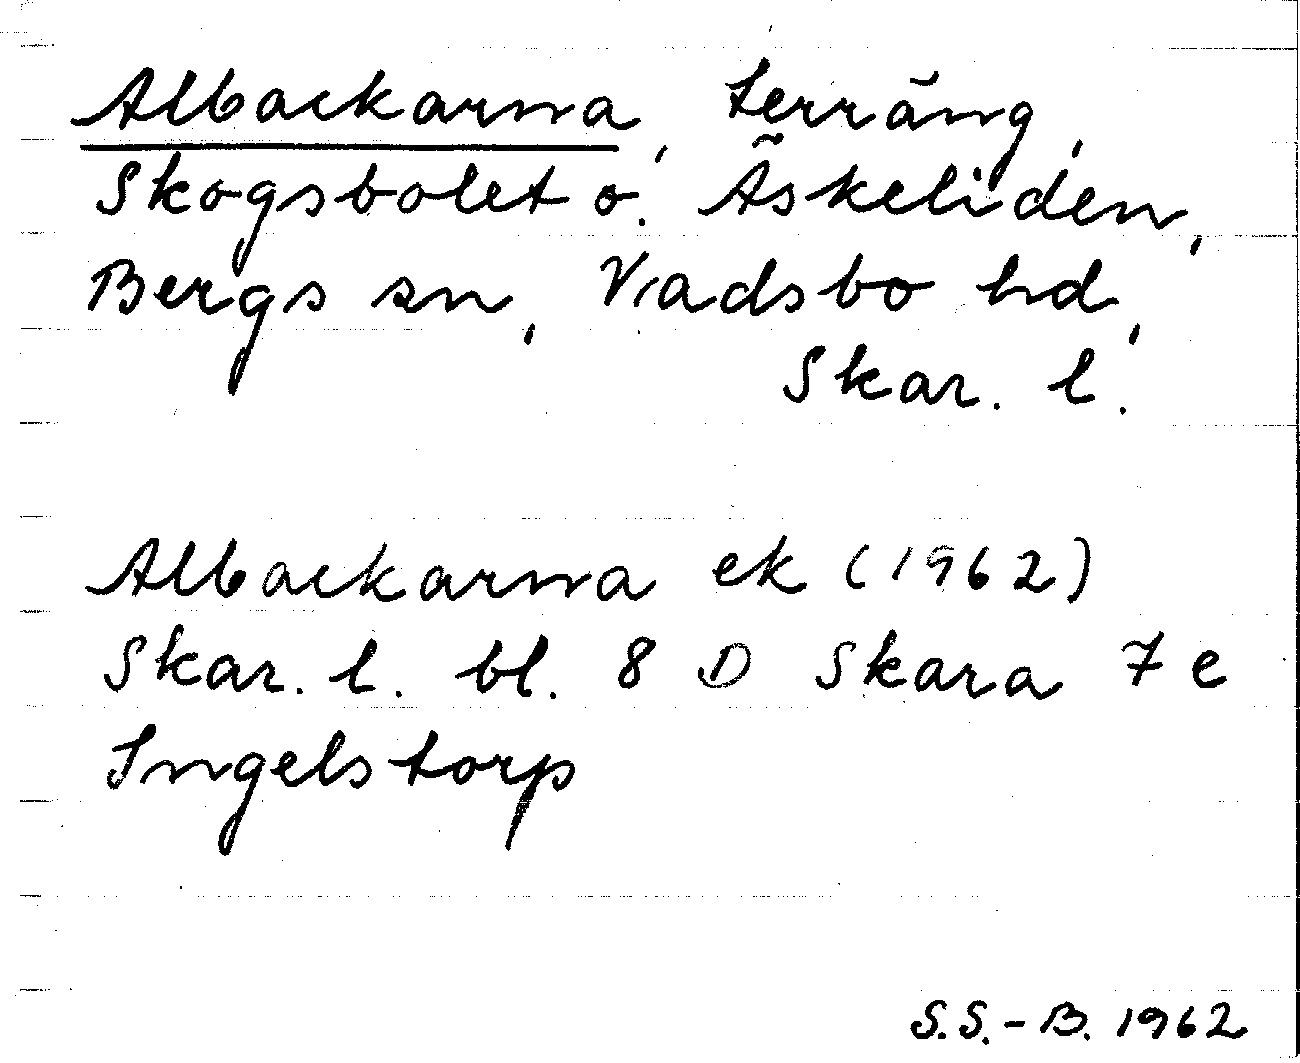 Albackarna, terräng,
Skogsbolet o. Äskeliden,
Bergs sn, Vadsbo hd,
Skar. l.
Albackarna ek (1962)
Skar. l. bl. 8 D Skara 7 e
Ingelstorp
S.S.-B. 1962